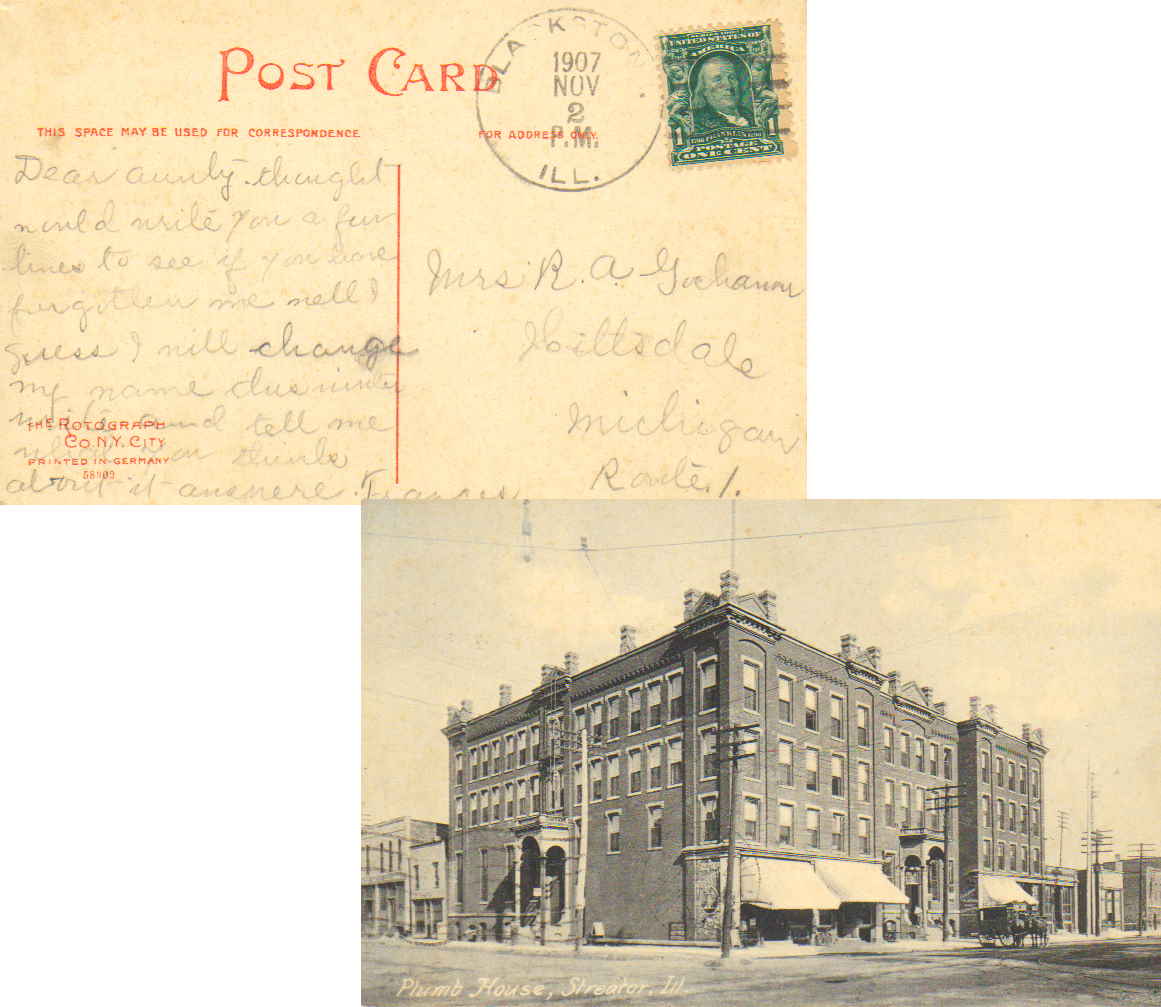 POST CARD
THIS SPACE MAY BE USED FOR CORRESPONDENCE
FOR ADDRESS ONLY.
BLACKSTONE
1907
NOV
2
P.M.
ILL.
SERIES 1902
UNITED STATES OF
AMERICA
1706 FRANKLIN 1790
1 POSTAGE
ONE CENT
Dear aunty. thought
would write you a few
lines to see if you have
forgotten me well I
guess I will change
my name this winter
write and tell me
what you think
about it answere. Frances.
Mrs R. A.
Hillsdale
Michigan
Route. 1.
THE ROTOGRAPH
CO. N.Y. CITY
PRINTED IN GERMANY
58909
Plumb House, Streator, Ill.